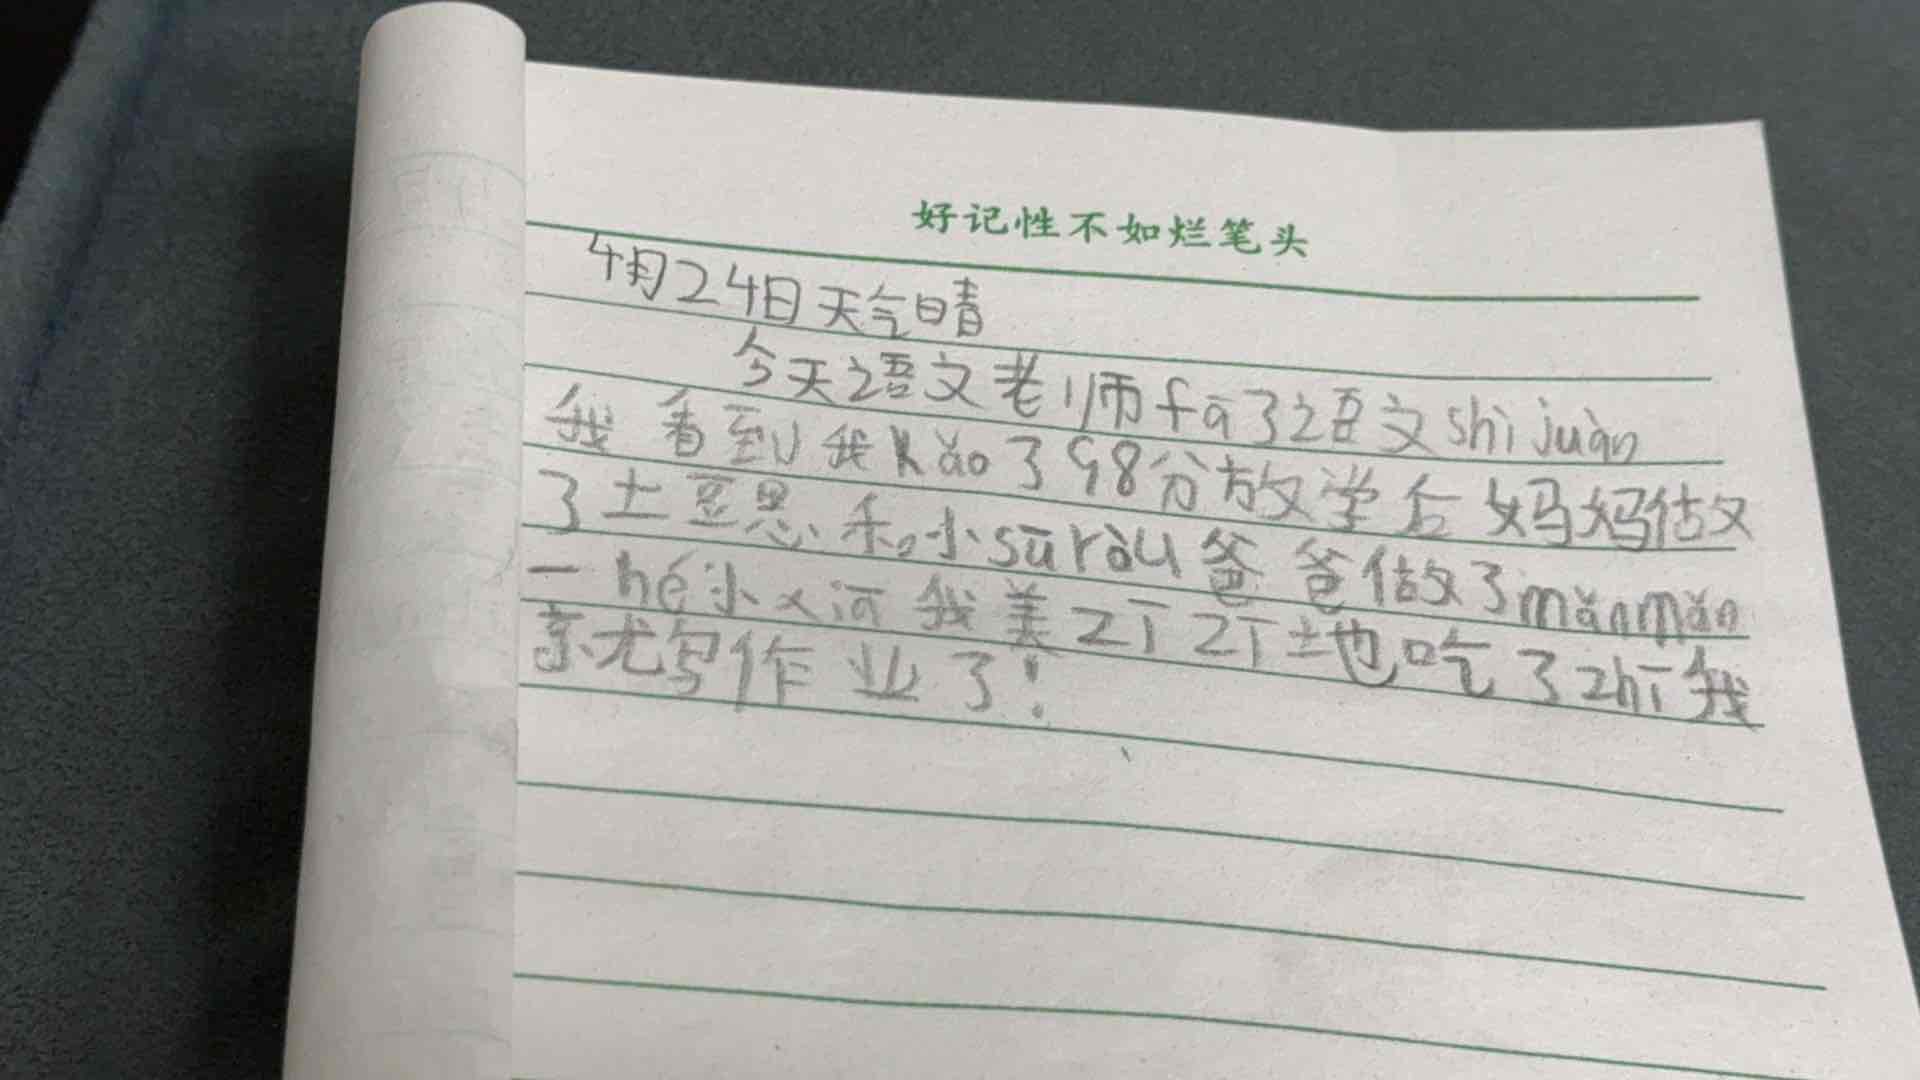 好记性不如烂笔头
4月24日天气晴
今天语文老师fā了语文shì juàn
我看到我kǎo了98分放学后妈妈做
了土豆思和小sū ròu爸爸做了mǎn mǎn
一hé小河我美zī zī土也吃了zhī我
京尤写作业了！